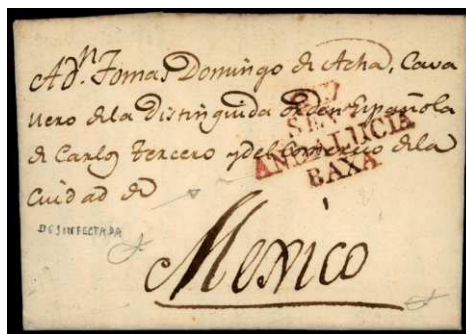 A Dn. Tomas Domingo de Acha, Cava
llero dela Distinguida orden Española
de Carlos tercero y del Comercio dela
Ciudad de
ANDALUCIA
BAXA
DESINFECTADA
Mexico